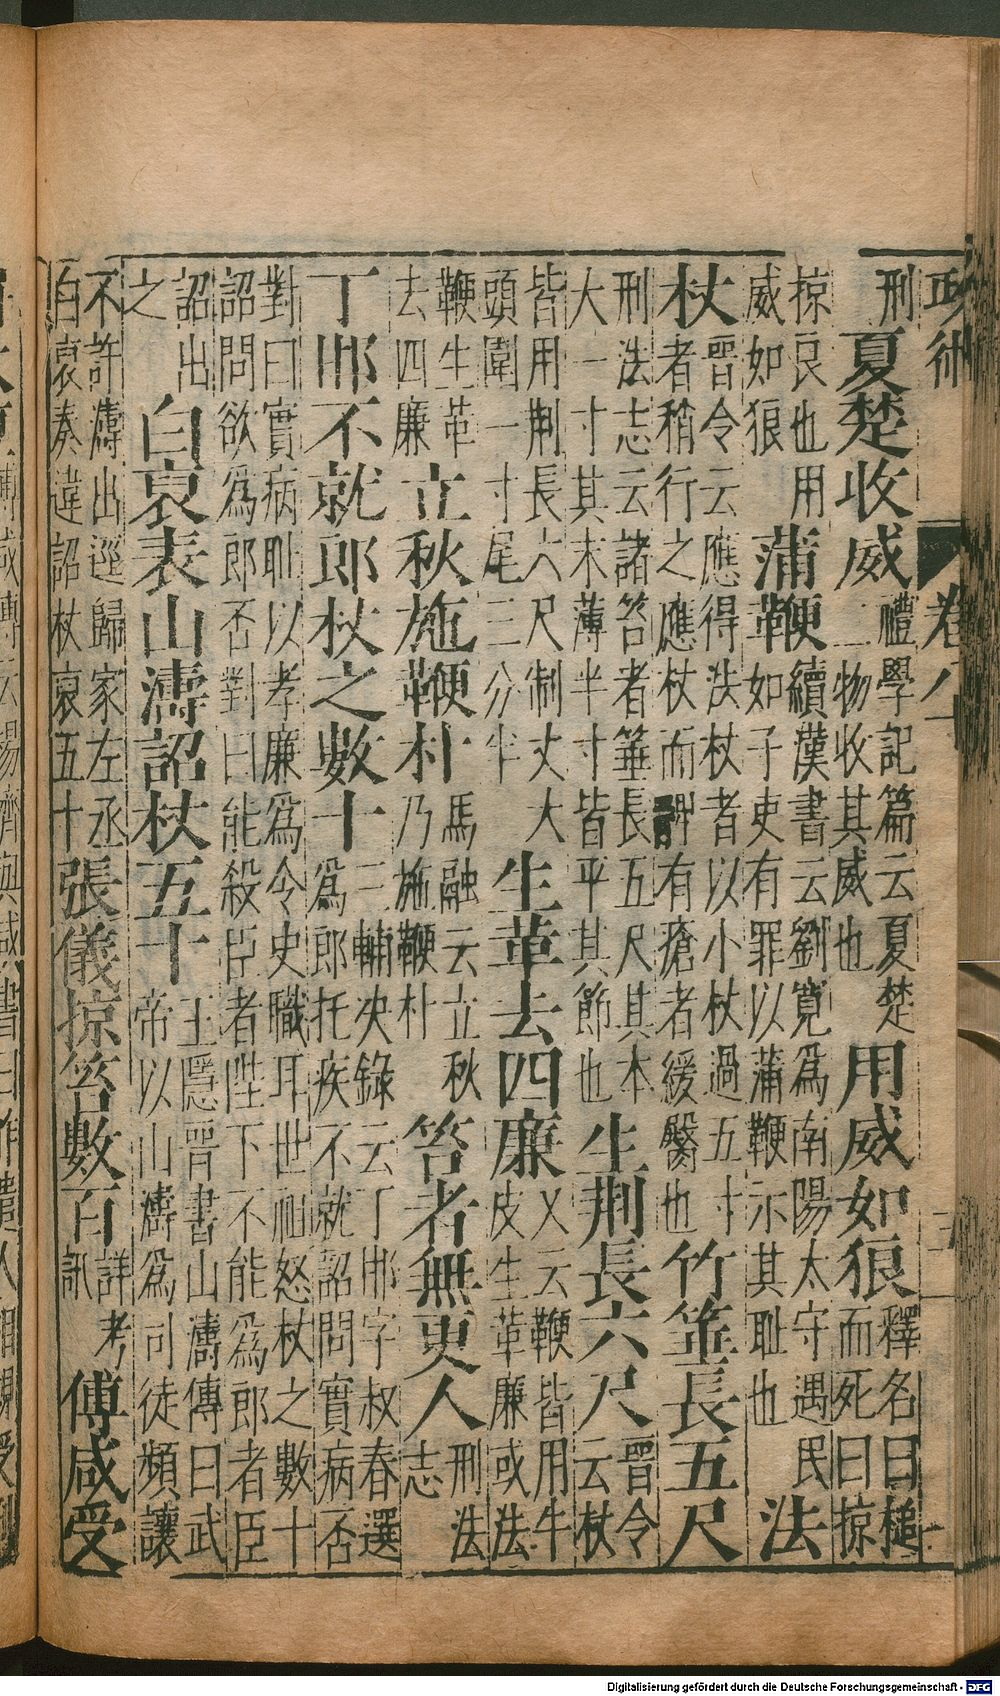 政術 卷八
刑 夏楚收威 禮學記篇云夏楚二物收其威也 用威如狼 釋名曰搥而死曰掠
掠良也用威如狼 蒲鞭 續漢書云劉寬爲南陽太守遇民如子吏有罪以蒲鞭示其耻也 法
杖 晉令云應得法杖者以小杖過五寸者稍行之應杖而有瘡者緩臀也 竹箠長五尺
刑法志云諸笞者箠長五尺其本大一寸其末薄半寸皆平其節也 生荆長六尺 晉令云杖
皆用荆長六尺制丈大頭圍一寸尾三分半 生革去四廉 又云鞭皆用牛皮生革廉或法
鞭生革去四廉 立秋施鞭朴 馬融云立秋乃施鞭朴 笞者無更人 刑法志
丁邯不就郎杖之數十 三輔决錄云丁邯字叔春選爲郎托疾不就詔問實病否
對曰實病耻以孝廉爲令史職耳世祖怒杖之數十詔問欲爲郎否對曰能殺臣者陛下不能爲郎者臣
詔出之 白裒表山濤詔杖五十 王隱晉書山濤傳曰武帝以山濟爲司徒頻讓
不許濤出逕歸家左丞白裒奏違詔杖裒五十 張儀掠笞數百 詳考訊 傅咸受
Digitalisierung gefördert durch die Deutsche Forschungsgemeinschaft - DFG